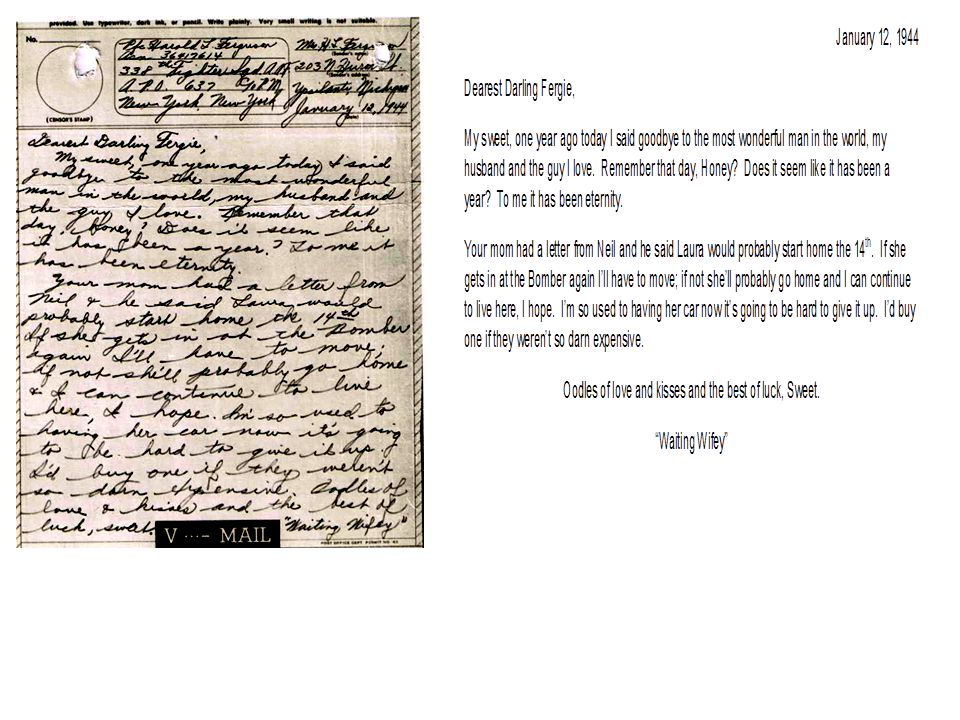 provided. Use typewriter, dark ink, or pencil. Write plainly. Very small writing is not suitable.
No.
(CENSOR'S STAMP)
Pfc Harold L. Ferguson
36417614
338th Fighter Sqd. A.A.F.
A.P.O. 637 % P.M.
New York, New York
Mrs. H. L. Ferguson
(Sender's name)
203 N. Huron St.
(Sender's address)
Ypsilanti, Michigan
January 12, 1944
(Date)
Dearest Darling Fergie,
My sweet, one year ago today I said
goodbye to the most wonderful
man in the world, my husband and
the guy I love. Remember that
day, Honey? Does it seem like
it has been a year? To me it
has been eternity.
Your mom had a letter from
Neil & he said Laura would
probably start home the 14th.
If she gets in at the Bomber
again I'll have to move;
if not she'll probably go home
& I can continue to live
here, I hope. I'm so used to
having her car now it's going
to be hard to give it up.
I'd buy one if they weren't
so darn expensive. Oodles of
love & kisses and the best of
luck, sweet. "Waiting Wifey"
V ···– MAIL
POST OFFICE DEPT. PERMIT NO.
January 12, 1944
Dearest Darling Fergie,
My sweet, one year ago today I said goodbye to the most wonderful man in the world, my
husband and the guy I love. Remember that day, Honey? Does it seem like it has been a
year? To me it has been eternity.
Your mom had a letter from Neil and he said Laura would probably start home the 14th. If she
gets in at the Bomber again I'll have to move; if not she'll probably go home and I can continue
to live here, I hope. I'm so used to having her car now it's going to be hard to give it up. I'd buy
one if they weren't so darn expensive.
Oodles of love and kisses and the best of luck, Sweet.
"Waiting Wifey"